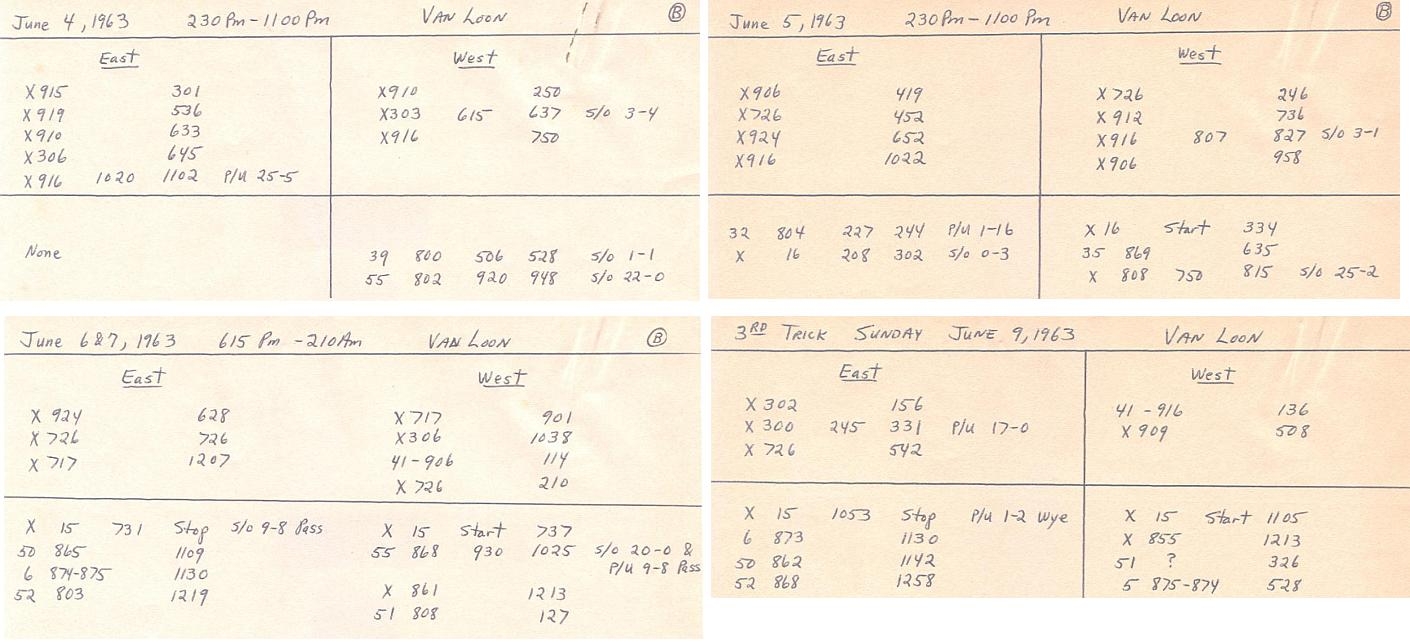 June 4, 1963 230 Pm - 1100 Pm VAN LOON B
East West
X 915 301 X 910 250
X 919 536 X 303 615 637 S/O 3-4
X 910 633 X 916 750
X 306 645
X 916 1020 1102 P/U 25-5
None 39 800 506 528 S/O 1-1
55 802 920 948 S/O 22-0
June 5, 1963 230 Pm - 1100 Pm VAN LOON B
East West
X 906 419 X 726 246
X 726 452 X 912 736
X 924 652 X 916 807 827 S/O 3-1
X 916 1022 X 906 958
32 804 227 244 P/U 1-16 X 16 Start 334
X 16 208 302 S/O 0-3 35 869 635
X 808 750 815 S/O 25-2
June 6 & 7, 1963 615 Pm - 210 Am VAN LOON B
East West
X 924 628 X 717 901
X 726 726 X 306 1038
X 717 1207 41 - 906 114
X 726 210
X 15 731 Stop S/O 9-8 Pass X 15 Start 737
50 865 1109 55 868 930 1025 S/O 20-0 &
6 874-875 1130 P/U 9-8 Pass
52 803 1219 X 861 1213
51 808 127
3RD TRICK SUNDAY JUNE 9, 1963 VAN LOON
East West
X 302 156 41 - 916 136
X 300 245 331 P/U 17-0 X 909 508
X 726 542
X 15 1053 Stop P/U 1-2 Wye X 15 Start 1105
6 873 1130 X 855 1213
50 862 1142 51 ? 326
52 868 1258 5 875-874 528